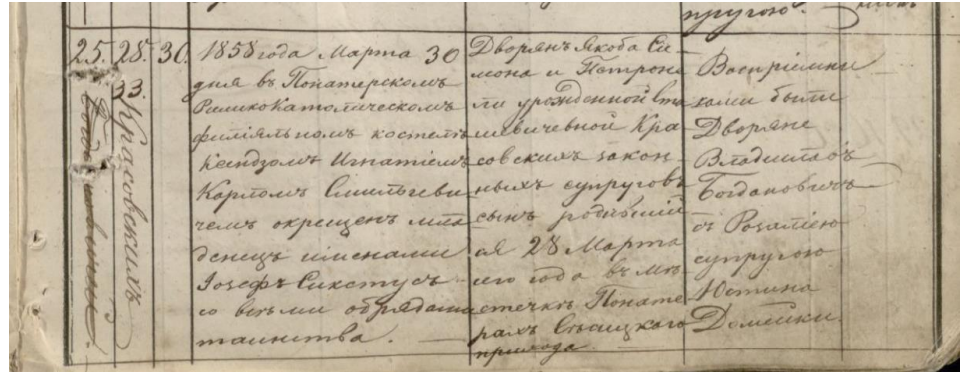 пругою.
25. 28. 30.
33.
Красовскимъ
1858 года Марта 30
дня въ Понатерскомъ
Римскокатолическомъ
филіяльномъ костелѣ
Ксендзомъ Игнатіемъ
Карломъ Смильгеви-
чемъ окрещенъ мла-
денецъ именами
Іосефъ Сикстусъ-
со всѣми обрядами
таинства.
Дворянъ Якоба Си-
мона и Петроне-
ли урожденной Ста-
шевичевной Кра-
совскихъ закон-
ныхъ супруговъ
сынъ родившій-
ся 28 Марта
сего года въ мѣ-
стечкѣ Понате-
рахъ Свѣсицкаго
прихода
Воспріемни-
ками были
Дворяне
Владиславъ
Богдановичъ
съ Розаліею
супругою
Юстина
Домейки.